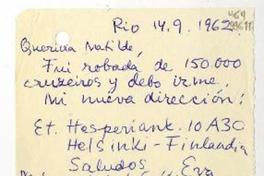 Rio 14.9.1962
Querida Matilde,
Fui robada de 150.000
cruzeiros y debo irme.
Mi nueva dirección:
Et. Hesperiank. 10 A 30
Helsinki - Finlandia
Saludos Eva